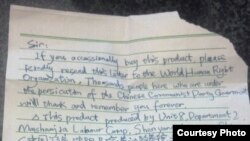 Sir:
If you occassionally buy this product, please
kindly resend this letter to the World Human Right
Organization. Thousands people here who are under
the persicution of the Chinese Communist Party Government
will thank and remember you forever.
This product produced by Unit 8, Department 2
Mashanjia Labour Camp, Shen yang
Courtesy Photo